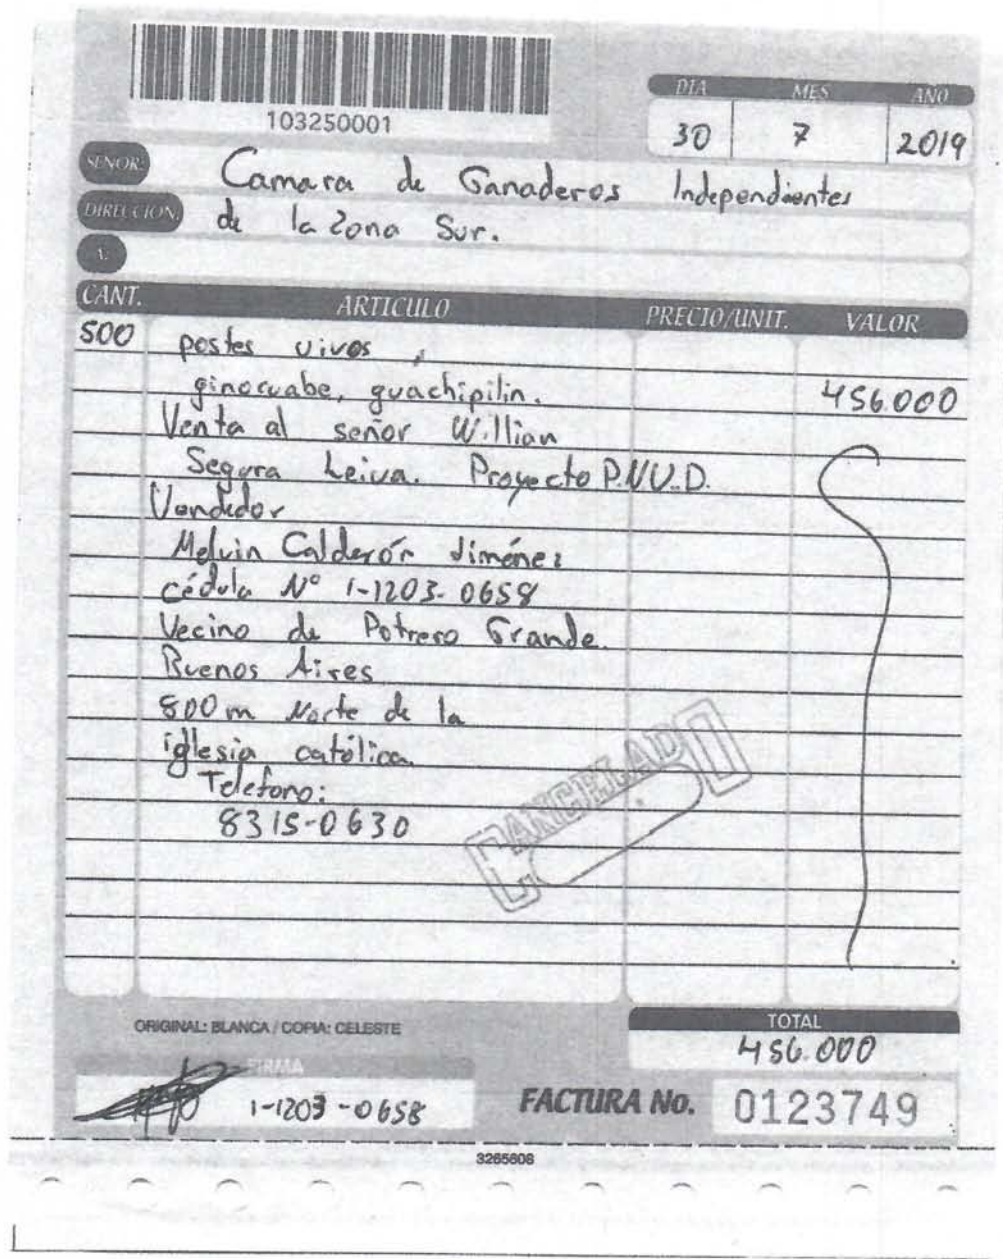 103250001
DIA MES AÑO
30 7 2019
SEÑOR: Camara de Ganaderos Independientes
DIRECCION: de la Zona Sur.
A:
CANT. ARTICULO PRECIO/UNIT. VALOR
500 postes vivos,
ginocuabe, guachipilin. 456.000
Venta al señor Willian
Segura Leiva. Proyecto P.NU.D.
Vendedor
Melvin Calderón Jiménez
cédula N° 1-1203-0658
Vecino de Potrero Grande.
Buenos Aires
800 m Norte de la
iglesia católica.
Telefono:
8315-0630
CANCELADO
ORIGINAL: BLANCA / COPIA: CELESTE
TOTAL
456.000
FIRMA
1-1203-0658
FACTURA No. 0123749
3265608